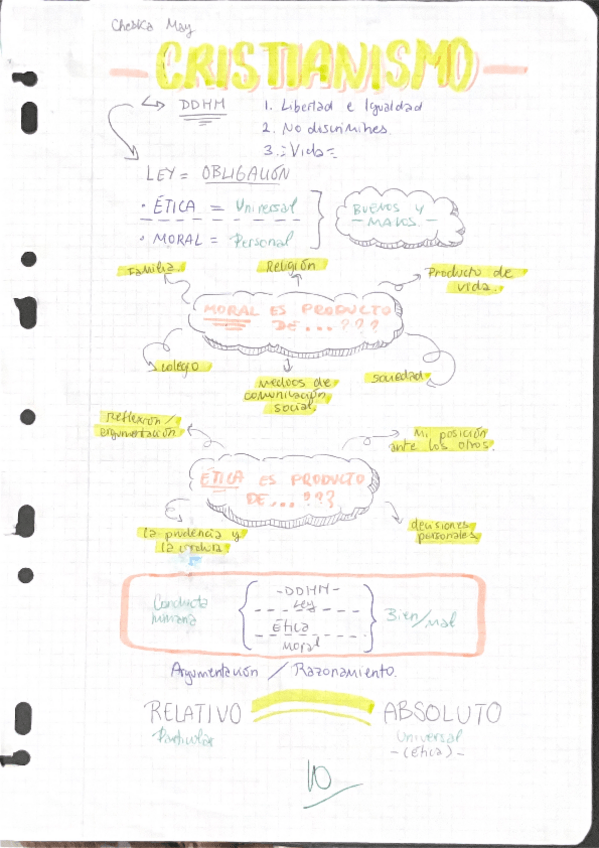 Cheska May
CRISTIANISMO
DDHM
1. Libertad e Igualdad
2. No discrimines
3. Vida
LEY = OBLIGACIÓN
• ÉTICA = Universal
• MORAL = Personal
BUENOS Y
MALOS.
Familia.
Religión
Producto de
vida.
MORAL ES PRODUCTO
DE...???
colegio
Medios de
comunicación
social.
sociedad.
Reflexión/
argumentación
Mi posición
ante los otros.
ÉTICA ES PRODUCTO
DE...???
la prudencia y
la
decisiones
personales.
Conducta
humana
-DDHH-
Ley
Ética
Moral
Bien/mal
Argumentación / Razonamiento.
RELATIVO
ABSOLUTO
Particular
Universal
-(ética)-
10